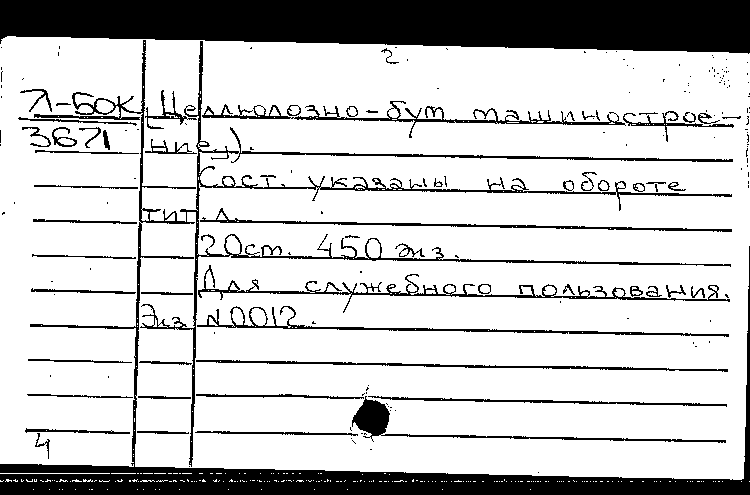 2.
Л-БОК (Целлюлозно-бум машинострое-
3671 ние).
Сост. указаны на обороте
тит. л.
20см. 450 экз.
Для служебного пользования.
Экз N0012.
4